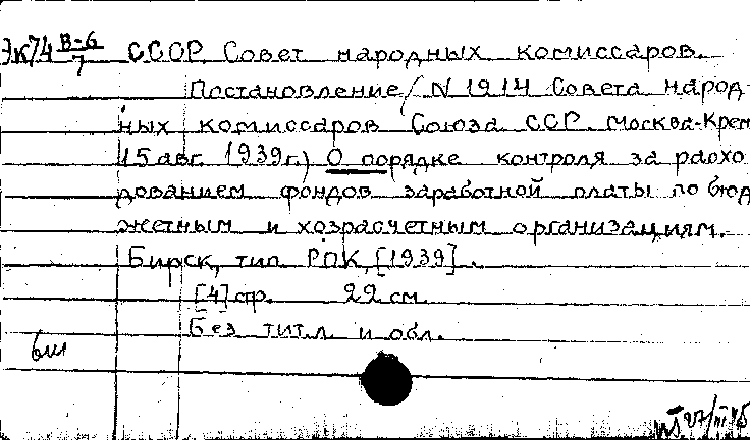 Эк74 В-6/7 СССР. Совет народных комиссаров.
Постановление (N 1914 Совета народ-
ных комиссаров Союза ССР. Москва-Крем
15 авг. 1939 г.) О порядке контроля за расхо
дованием фондов заработной платы по бюд
жетным и хозрасчетным организациям.
Бирск, тип. РПК, [1939].
[4] стр. 22 см.
Без тит. л. и обл.
6ш